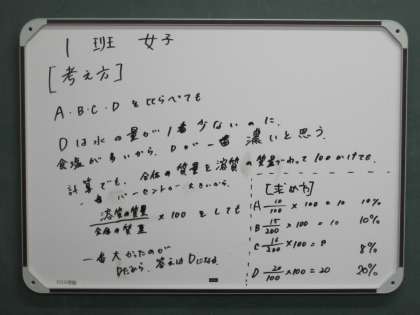 1 班 女子
[考え方]
A・B・C・Dをくらべても
Dは水の量が1番少ないのに、
食塩が多いから、Dが一番 濃いと思う。
計算でも、全体の質量を溶質の質量でわって100かけても、
一番 パーセントが大きいから。
溶質の質量
全体の質量
×100 をしても
一番大かったのが
Dだから、答えはDになる。
[求め方]
A 10/100 ×100 = 10 10%
B /200 ×100 = 10 10%
C /200 ×100 = 8 8%
D 20/100 ×100 = 20 20%